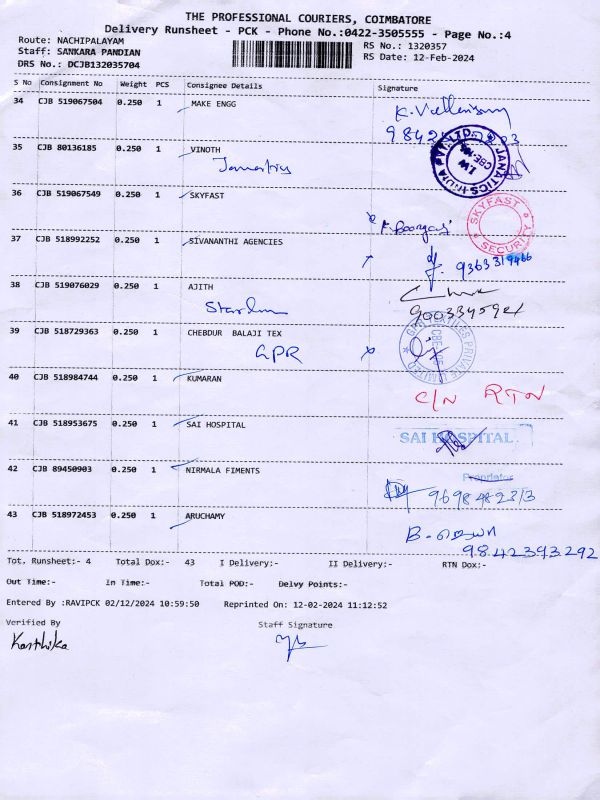 THE PROFESSIONAL COURIERS, COIMBATORE
Delivery Runsheet - PCK - Phone No.:0422-3505555 - Page No.:4
Route: NACHIPALAYAM
RS No.: 1320357
Staff: SANKARA PANDIAN
RS Date: 12-Feb-2024
DRS No.: DCJB132035704
S No Consignment No Weight PCS Consignee Details Signature
34 CJB 519067504 0.250 1 MAKE ENGG
35 CJB 80136185 0.250 1 VINOTH
JANATICS INDIA PVT. LTD
36 CJB 519067549 0.250 1 SKYFAST
SKYFAST
SECURITY
37 CJB 518992252 0.250 1 SIVANANTHI AGENCIES
38 CJB 519076029 0.250 1 AJITH
39 CJB 518729363 0.250 1 CHEBDUR BALAJI TEX
GPR
40 CJB 518984744 0.250 1 KUMARAN
C/N RTN
41 CJB 518953675 0.250 1 SAI HOSPITAL
SAI HOSPITAL
42 CJB 89450903 0.250 1 NIRMALA FIMENTS
Proprietor
43 CJB 518972453 0.250 1 ARUCHAMY
9842393292
Tot. Runsheet:- 4 Total Dox:- 43 I Delivery:- II Delivery:- RTN Dox:-
Out Time:- In Time:- Total POD:- Delvy Points:-
Entered By :RAVIPCK 02/12/2024 10:59:50 Reprinted On: 12-02-2024 11:12:52
Verified By Staff Signature
Karthika